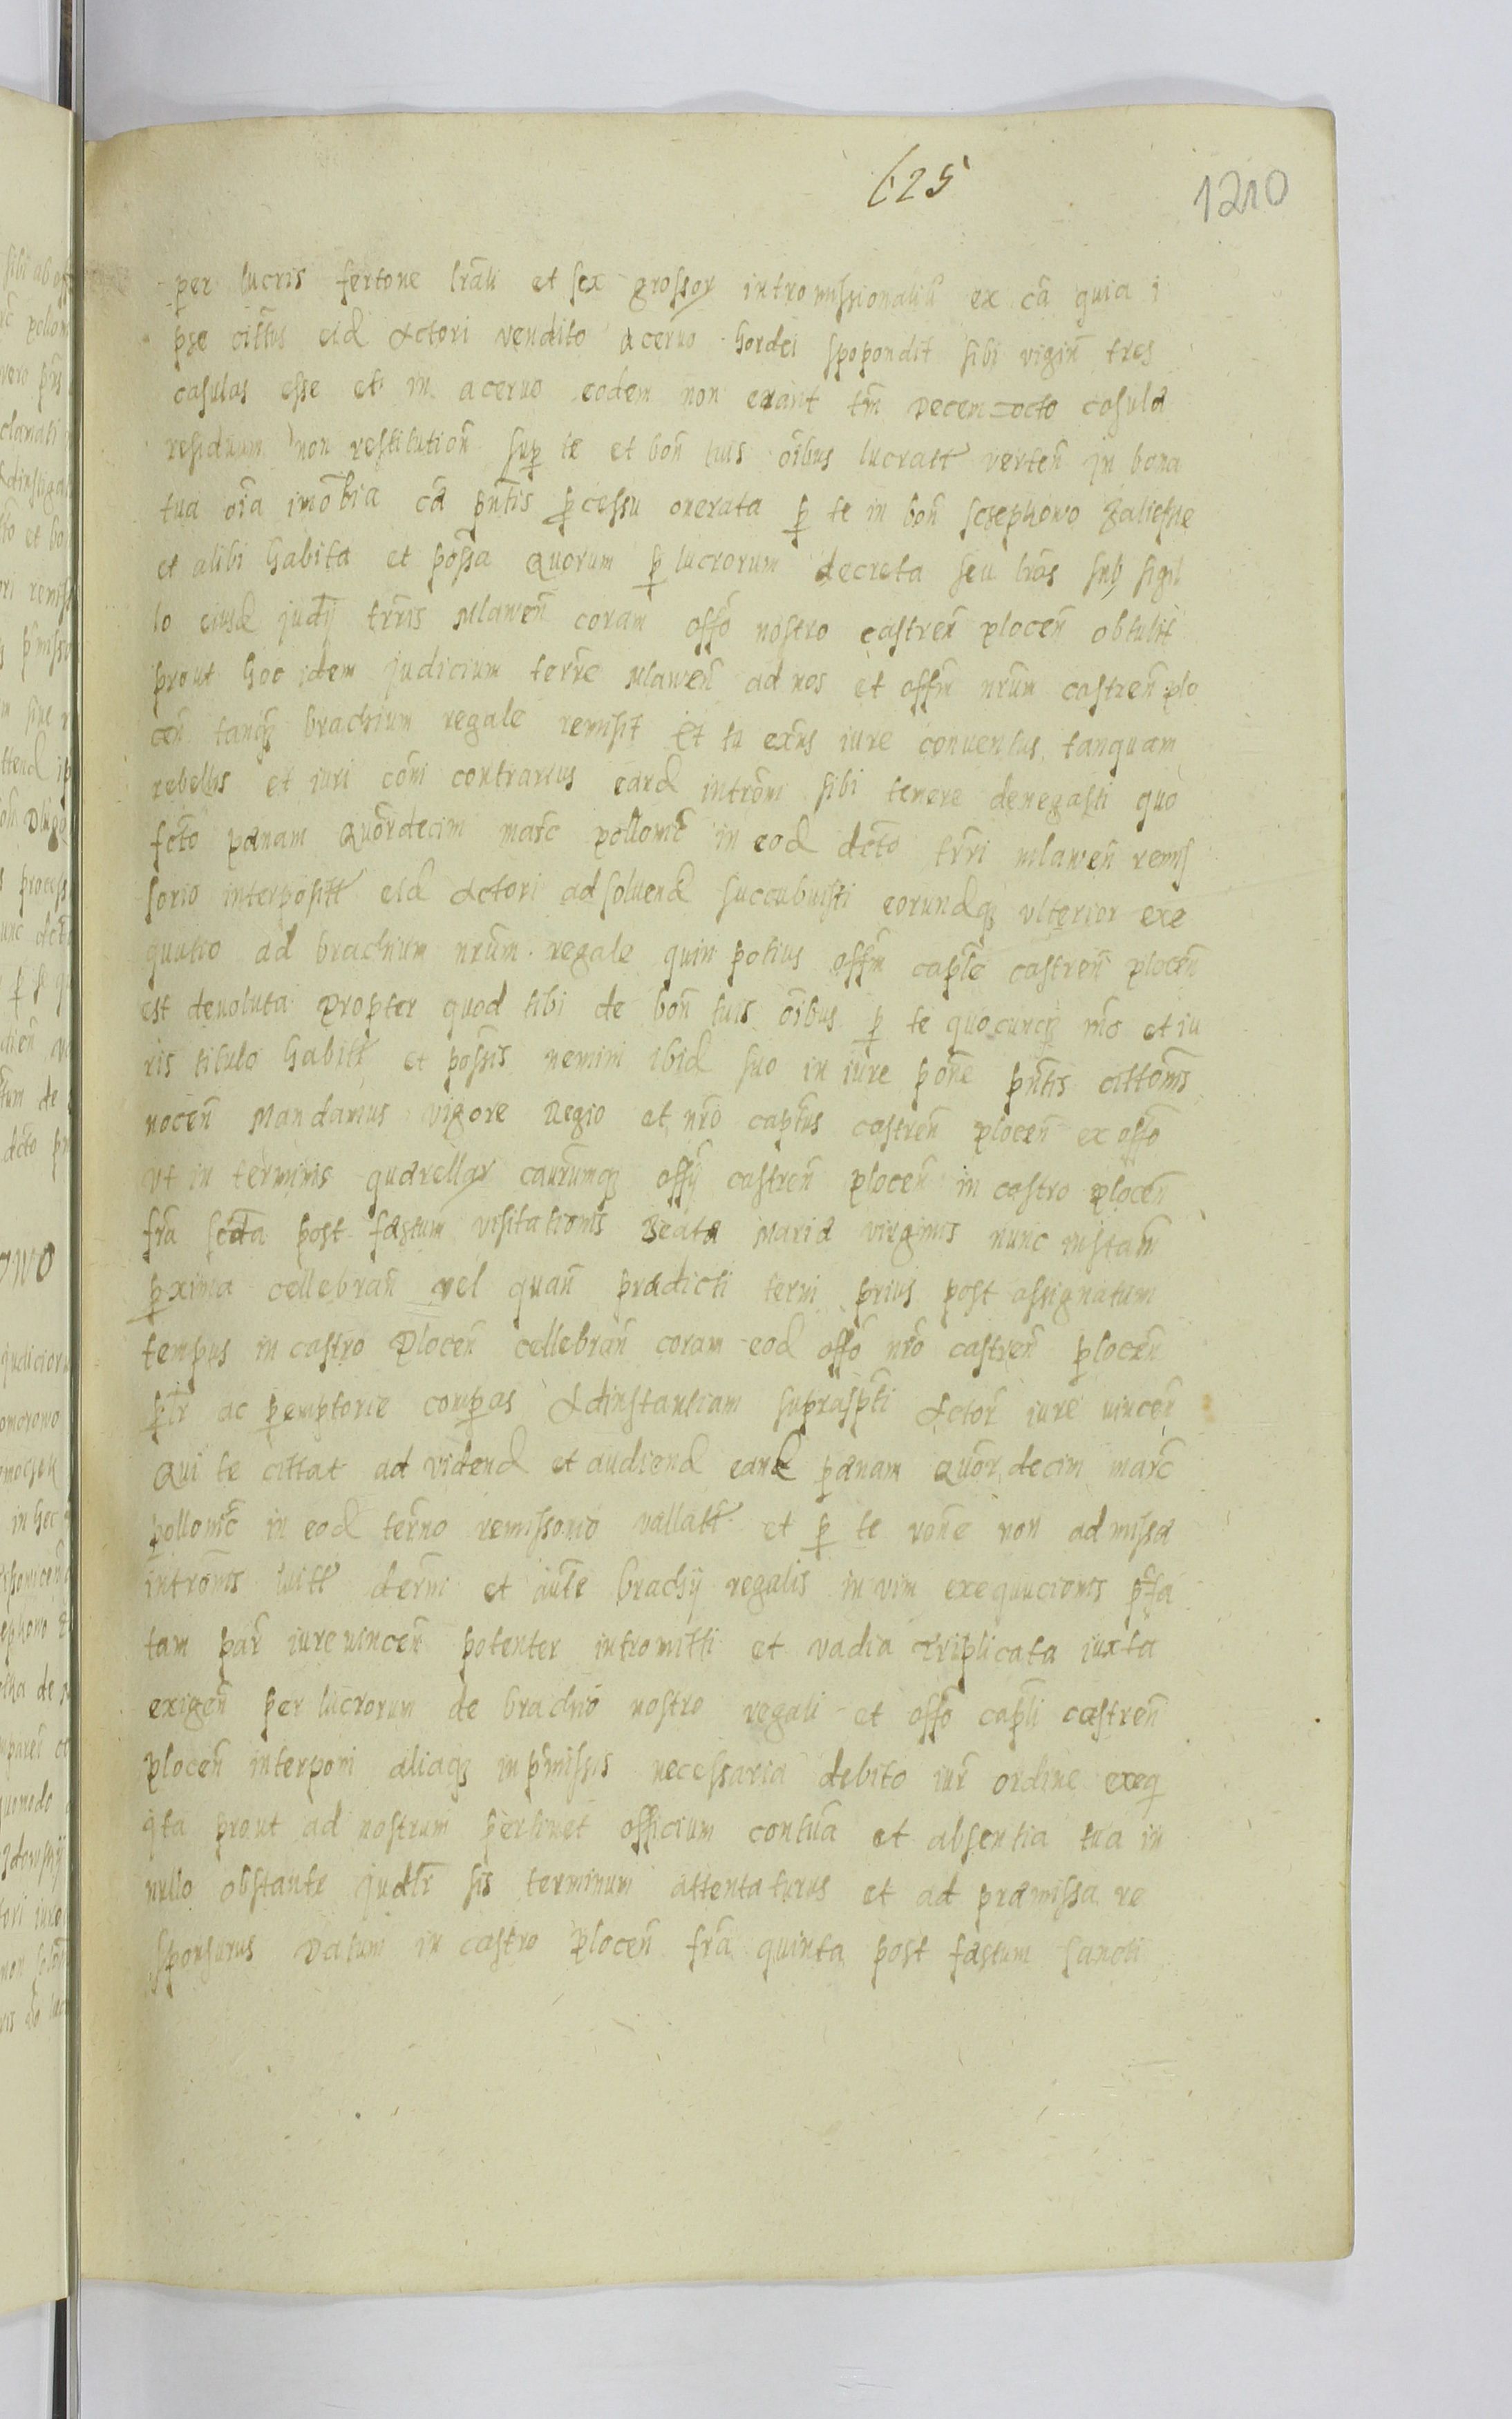 625
1210
per lucris fertone lrali et sex grossor intromissionaliu ex ca quia i
pse cittus eid Actori vendito acervo hordei spopondit sibi vigin tres
casulas esse et in acervo eodem non erant tm Decem octo casulæ
residuum non restitution sup te et bon tuis oibus lucratt verten in bona
tua oia imobia ca pntis pcessu onerata p te in bon Sczephowo Galiczne
et alibi habita et possa Quorum p lucrorum decreta seu lras sub sigil
lo eiusd judij trris Mlawen coram offo nostro castren plocen obtulit
prout hoc idem judicium terre Mlawen ad nos et offm nrum castren plo
cen tanq brachium regale remisit Et tu exns iure conventus tanquam
rebellis et iuri coni contrarius eand introm sibi tenere denegasti quo
fcto pænam Quordecim marc pollonic in eod dcto trri mlawen remis
sorio interpositt eid Actori ad solvend succubuisti eorundq ulterior exe
qutio ad brachium nrum regale quin potius offm caple castren plocen
est devoluta Propter quod tibi de bon tuis oibus p te quocunq mo et iu
ris titulo habitt et possis nemini ibid suo in iure pone pntis cittonis
nocen Mandamus vigore Regio et nro captus castren plocen ex offo
ut in terminis quærellar caurumq offij castren plocen in castro plocen
fra scda post fæstum visitationis Beatæ Mariæ virginis nunc instan
pxima cellebran vel quan prædicti termi prius post assignatum
tempus in castro Plocen cellebran coram eod offo nro castren plocen
plr ac pemptorie compeas Adinstantiam suprascpti Actor iure vincen
Qui te cittat ad vidend et audiend eand pænam Quor decim marc
pollonic in eod termo remissorio vallatt et p te rone non admissæ
intromis luitt dcerni et aucte brachij regalis in vim exequucionis pfa
tam par iure vincen potenter intromitti et vadia triplicata iuxta
exigen per lucrorum de brachio nostro regali et offo capli castren
plocen interponi aliaq in pmissis necessaria debito iur ordine exeq
qta prout ad nostrum pertinet officium contua et absentia tua in
nullo obstante judlr sis terminum attentaturus et ad præmissa re
sponsurus Datum in castro Plocen fra quinta post fæstum sancti